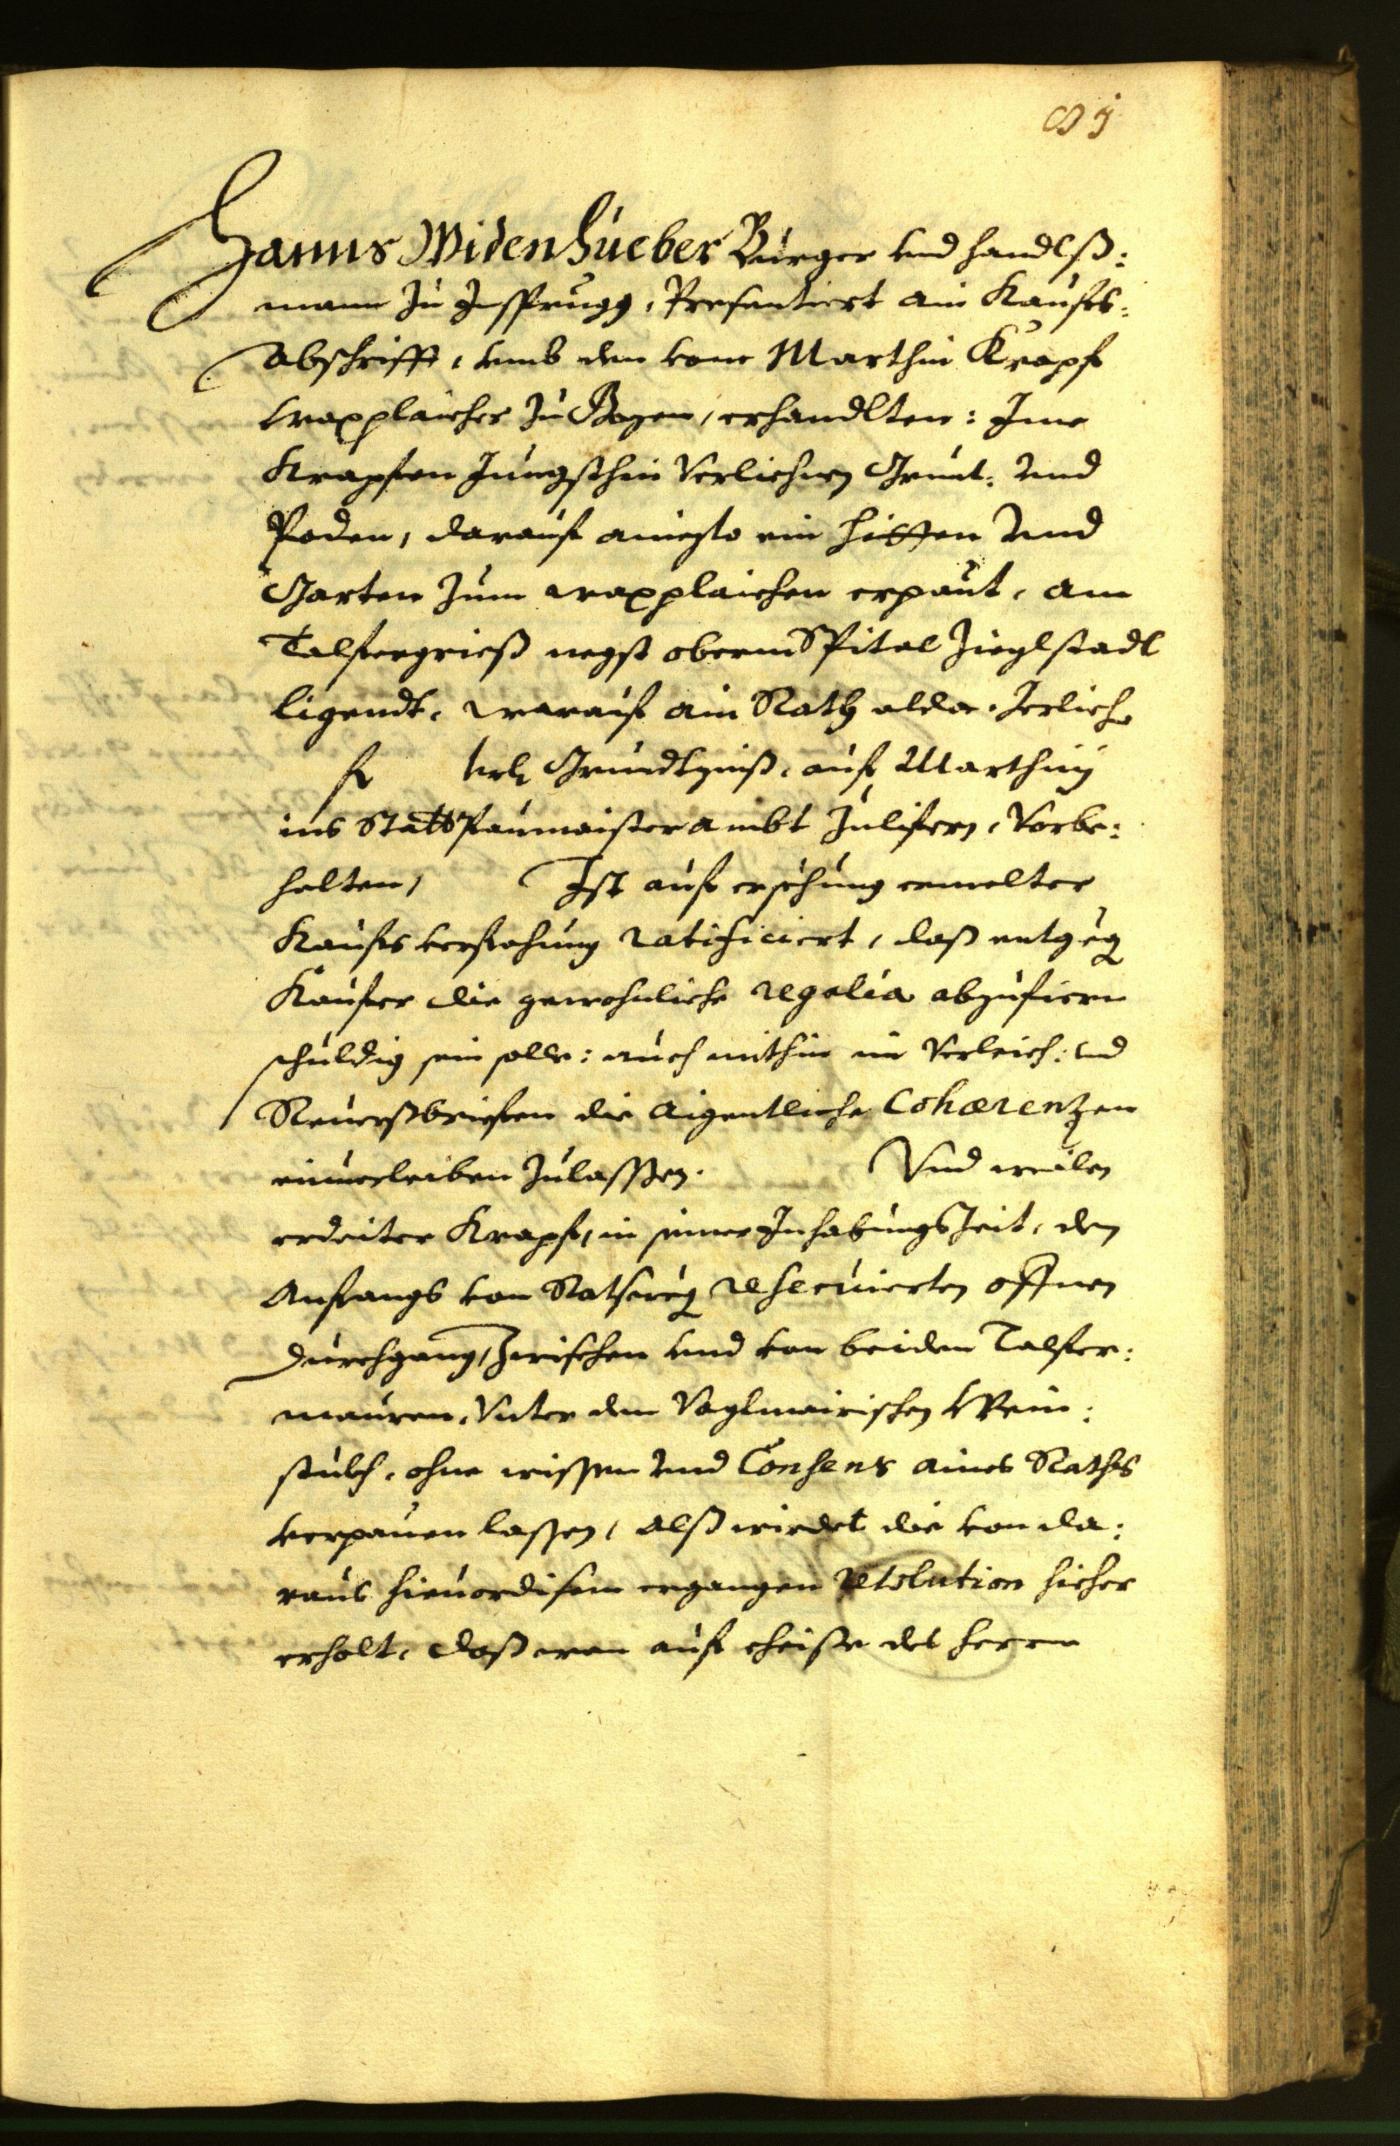 Hanns Widenhueber Burger und Handlß:
mann zu Insprugg, Presentiert ain Kaufs=
abschrifft, umb den vone Marthin Krapf
waxplaicher zu Bozen, erhandlten: Ime
Krapfen jungsthin verlichnen Grunt: und
Poden, darauf aniezto ein Hitten und
Garten zum waxplaichen erpaut, am
Talfergrieß negst oberm Spital Zieglstadl
ligendt, warauf ain Rath alda, Jerliche
f Grundtzinß, auf Marthiny
ins Statt Paumaister ambt zulifern, vorbe:
halten, Ist auf ersehung ermelter
Kaufs verfahung ratificiert, daß entgeg
Kaufer die gewohnliche regalia abzufiern
schuldig sein solle: auch mithin in Verleich: und
Reuerßbriefen die aigentliche Cohærenzen
einuerleiben zulassen. Und weilen
erdeiter Krapf, in seiner Inhabungs Zeit, den
Anfangs von Rats reseruierten offnen
Durchgang, zwischen und von beiden Talfer:
mauren, unter dem Voglmairischen Wein:
stukh, ohne wissen und Consens aines Raths
verpauen lassen, alß wirdet die von da:
raus hieuordisem ergangen resolution hieher
erholt, daß man auf des herrn